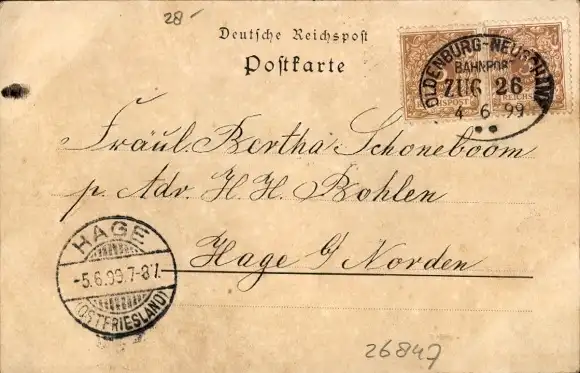 28-
Deutsche Reichspost
Postkarte
OLDENBURG-NEUSCHANZ
BAHNPOST
ZUG 26
4 6 99
REICHSPOST
Fräul. Bertha Schoneboom
p. Adr. H. H. Bohlen
Hage b/ Norden
HAGE
-5.6.99.7-8V.
(OSTFRIESLAND)
26847